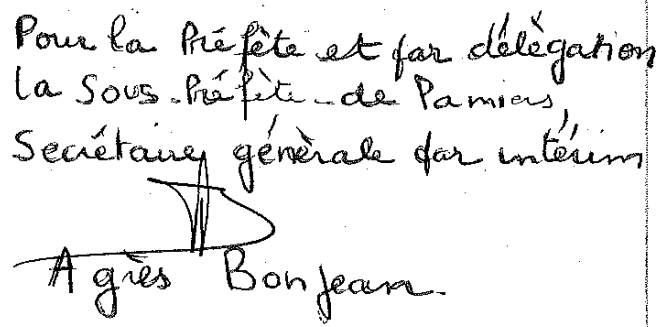 Pour la Préfète et par délégation
la Sous-Préfète de Pamiers,
Secrétaire générale par intérim
Agnès Bonjean.